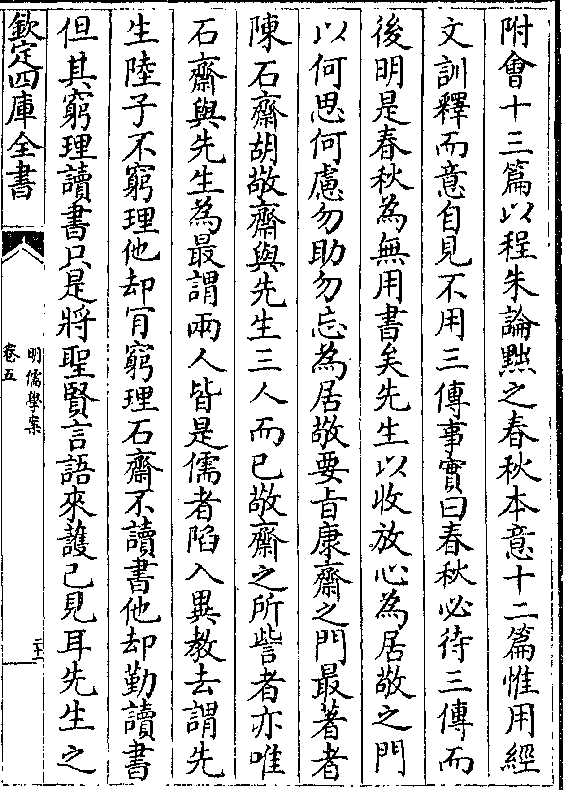 附會十三篇以程朱論黜之春秋本意十二篇惟用經
文訓釋而意自見不用三傳事實曰春秋必待三傳而
後明是春秋為無用書矣先生以收放心為居敬之門
以何思何慮勿助勿忘為居敬要旨康齋之門最著者
陳石齋胡敬齋與先生三人而已敬齋之所訾者亦唯
石齋與先生為最謂兩人皆是儒者陷入異教去謂先
生陸子不窮理他却肎窮理石齋不讀書他却勤讀書
但其窮理讀書只是將聖賢言語來護己見耳先生之
欽定四庫全書
明儒學案
卷五
二十